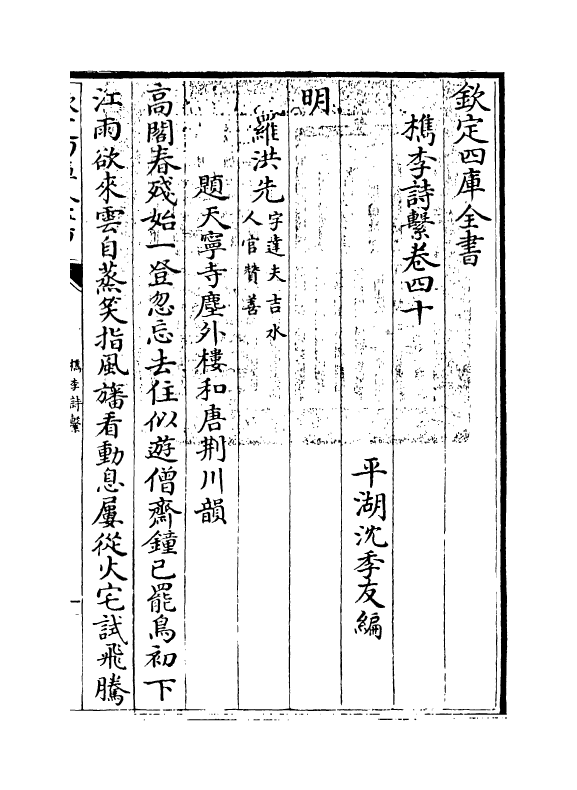 欽定四庫全書
檇李詩繫卷四十
平湖沈季友編
明
羅洪先字達夫吉水
人官贊善
題天寧寺塵外樓和唐荆川韻
高閣春殘始一登忽忘去住似遊僧齋鐘已罷鳥初下
江雨欲來雲自蒸笑指風旛看動息屢從火宅試飛騰
檇李詩繫
一